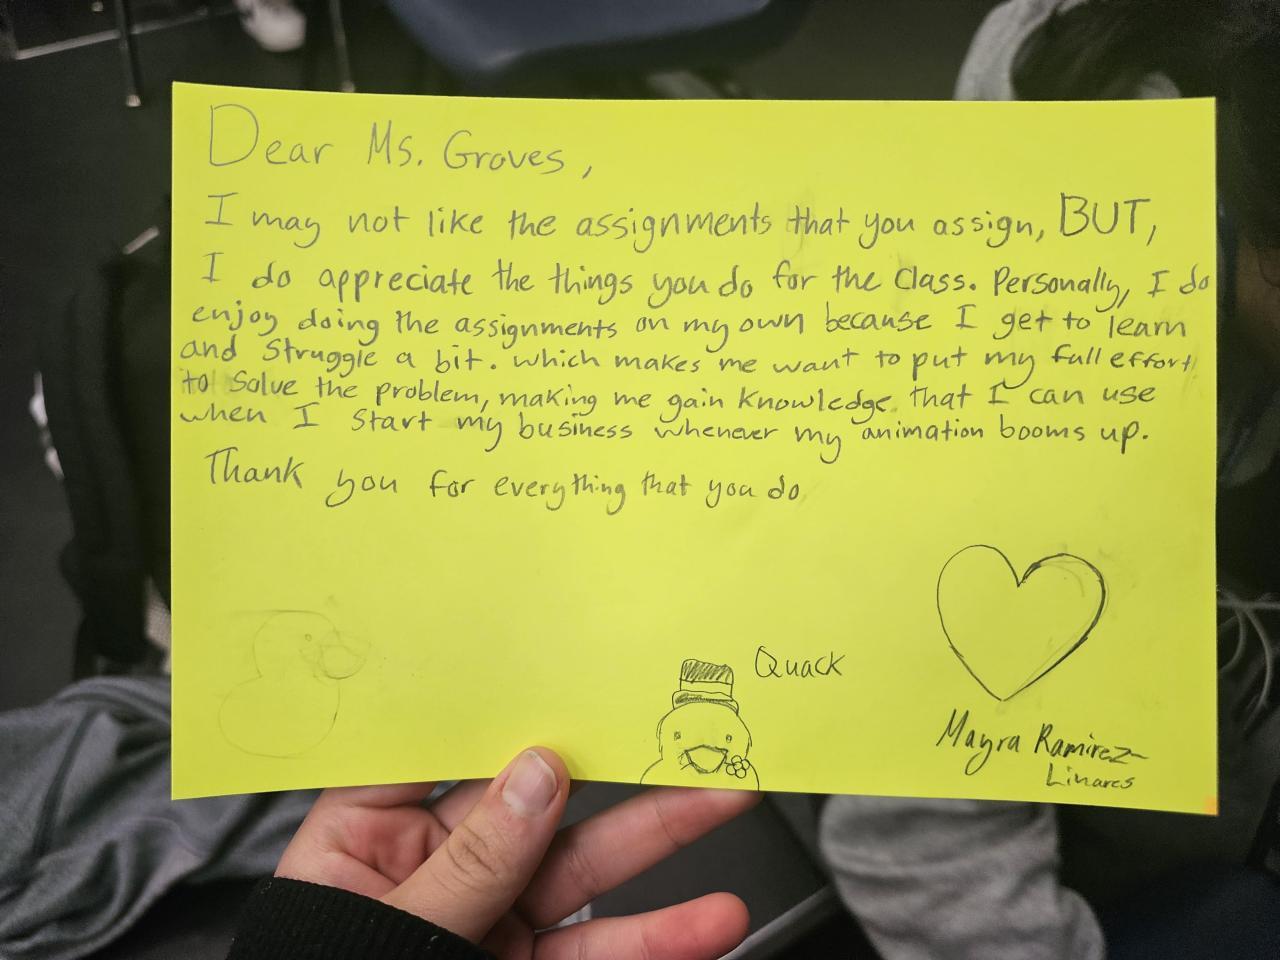 Dear Ms. Groves,
I may not like the assignments that you assign, BUT,
I do appreciate the things you do for the class. Personally, I do
enjoy doing the assignments on my own because I get to learn
and struggle a bit. which makes me want to put my full effort
to solve the problem, making me gain knowledge that I can use
when I start my business whenever my animation booms up.
Thank you for everything that you do
Quack
Mayra Ramirez-
Linares